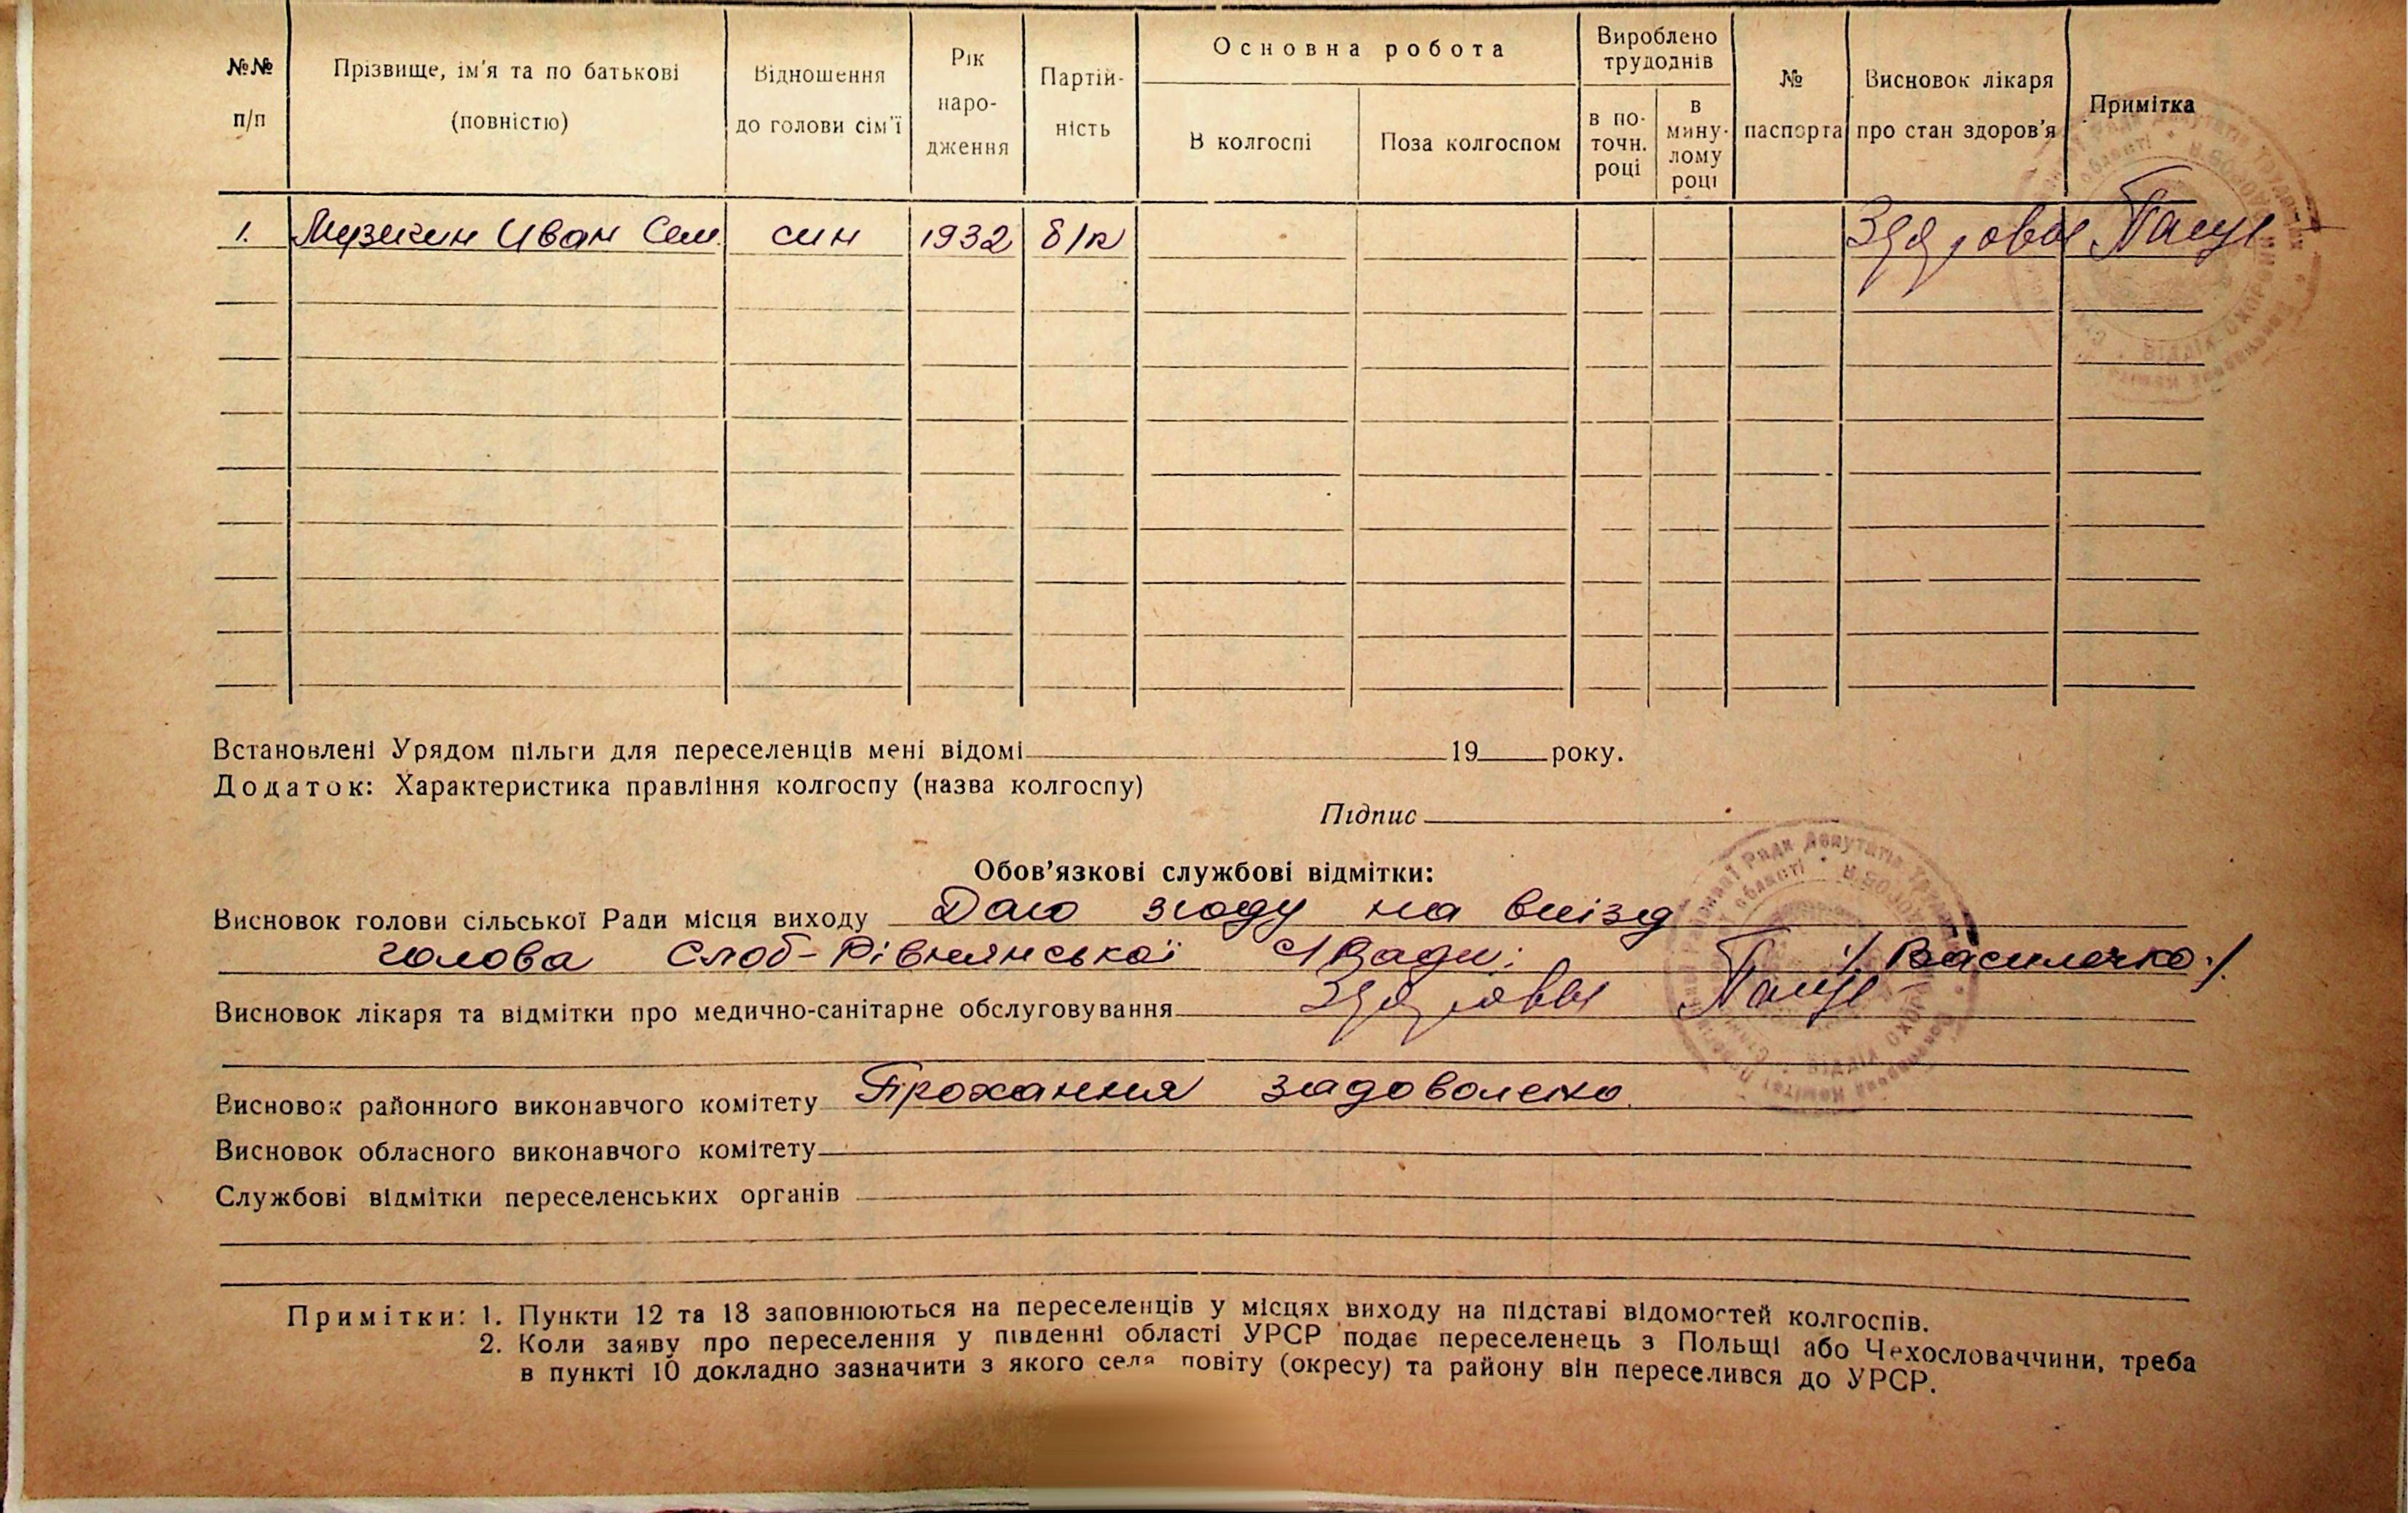 №№ п/п
Прізвище, ім'я та по батькові (повністю)
Відношення до голови сім'ї
Рік наро-дження
Партій-ність
Основна робота
В колгоспі
Поза колгоспом
Вироблено трудоднів
в по-точн. році
в мину-лому році
№ паспорта
Висновок лікаря про стан здоров'я
Примітка
1. Иван Сем. син 1932 б/п Здоровы
Встановлені Урядом пільги для переселенців мені відомі 19 року.
Додаток: Характеристика правління колгоспу (назва колгоспу)
Підпис
Обов'язкові службові відмітки:
Висновок голови сільської Ради місця виходу Даю згоду на виїзд
голова Слоб-Рівнянської с/Ради: /Василечко/.
Висновок лікаря та відмітки про медично-санітарне обслуговування Здоровы
Висновок районного виконавчого комітету Прохання задоволено.
Висновок обласного виконавчого комітету
Службові відмітки переселенських органів
Примітки: 1. Пункти 12 та 13 заповнюються на переселенців у місцях виходу на підставі відомостей колгоспів.
2. Коли заяву про переселення у південні області УРСР подає переселенець з Польщі або Чехословаччини, треба
в пункті 10 докладно зазначити з якого села повіту (окресу) та району він переселився до УРСР.